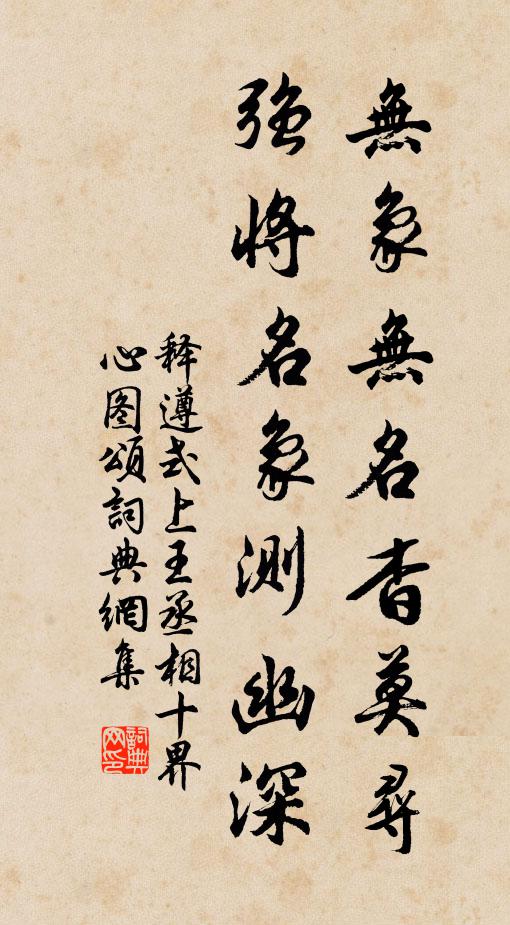 無象無名杳莫尋
強將名象測幽深
釋遵式上王丞相十界
心图頌詞典網集
詞典网印